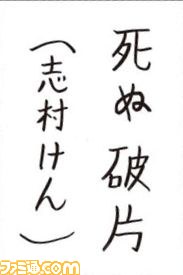 死ぬ破片
(志村けん)
ファミ通.com